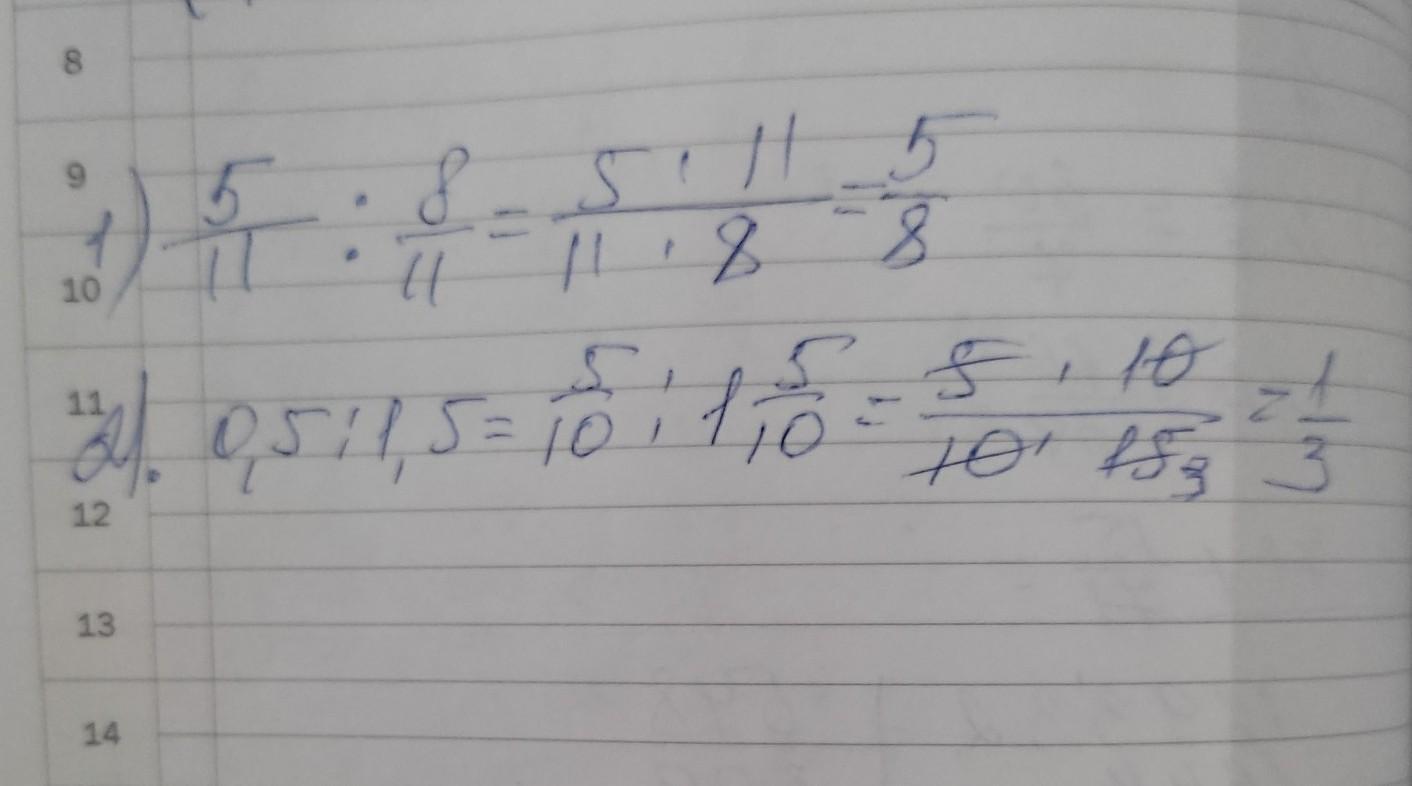 8
9
1) 5/11 : 8/11 = 5 · 11 / 11 · 8 = 5/8
10
11
2). 0,5 : 1,5 = 5/10 : 1 5/10 = 5 · 10 / 10 · 15 3 = 1/3
12
13
14